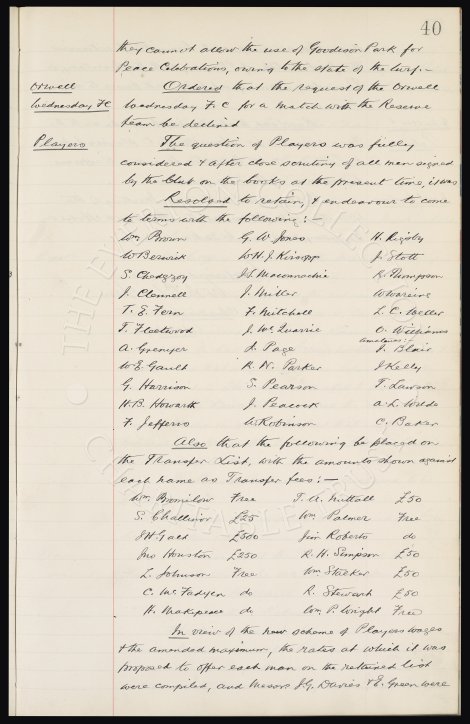 40
they cannot allow the use of Goodison Park for
Peace Celebrations, owing to the state of the turf.—
Orwell
Wednesday FC
Ordered that the request of the Orwell
Wednesday F.C for a match with the Reserve
team be declined
Players
The question of Players was fully
considered & after close scrutiny of all men signed
by the Club on the books at the present time, it was
Resolved to retain, & endeavour to come
to terms with the following:—
Wm Brown G. W. Jones H. Rigsby
W Berwick W H. J. Kirsopp J. Stott
S. Chedgzoy J S Maconnachie R. Thompson
J. Clennell J. Miller W Waring
T. E. Fern F. Mitchell L. C. Weller
T. Fleetwood J. McQuarrie O. Williams
amateurs:
A. Grenyer J. Page J. Blair
W E. Gault R. W. Parker J Kelly
G. Harrison S. Pearson T. Lawson
H. B. Howarth J. Peacock A. L. Welds
F. Jefferis A. Robinson C. Baker
Also that the following be placed on
the Transfer List, with the amounts shown against
each name as Transfer fees:—
Wm. Bromilow Free T. A. Nuttall £50
S. Challinor £25 Wm. Palmer Free
J H Gald £300 Jim Roberts do
Jno Houston £250 R. H. Simpson £50
L. Johnson Free Wm Stalker £50
C. McFadyen do R. Stewart £50
H. Makepeace do Wm. P. Wright Free
In view of the new scheme of Players wages
& the amended maximum, the rates at which it was
proposed to offer each man on the retained list
were compiled, and Messrs J.G. Davies & E. Green were